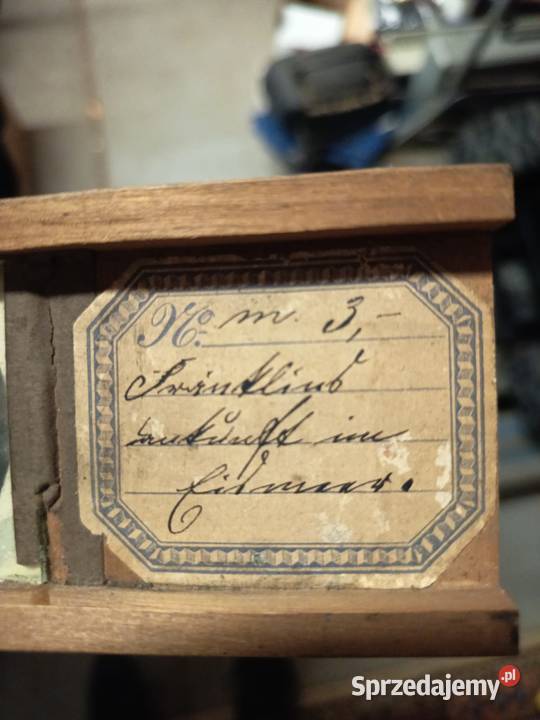 No. m. 3,-
Franklins
ankunft im
Eismeer.
Sprzedajemy.pl